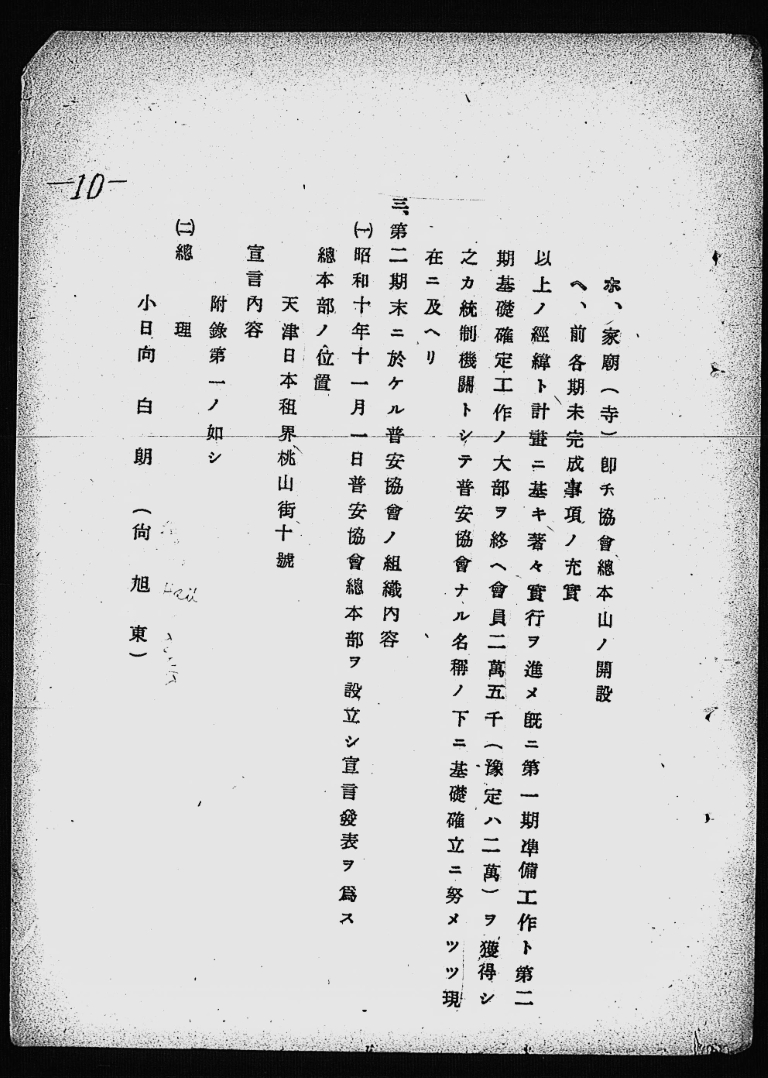 ホ、家廟（寺）卽チ協會總本山ノ開設
ヘ、前各期未完成事項ノ充實
以上ノ經緯ト計畫ニ基キ著々實行ヲ進メ旣ニ第一期準備工作ト第二
期基礎確定工作ノ大部ヲ終ヘ會員二萬五千（豫定ハ二萬）ヲ獲得シ
之カ統制機關トシテ普安協會ナル名稱ノ下ニ基礎確立ニ努メツツ現
在ニ及ヘリ
三、第二期末ニ於ケル普安協會ノ組織內容
㈠昭和十年十一月一日普安協會總本部ヲ設立シ宣言發表ヲ爲ス
總本部ノ位置
天津日本租界桃山街十號
宣言內容
附錄第一ノ如シ
㈡總理
小日向白朗（尙旭東）
—10—